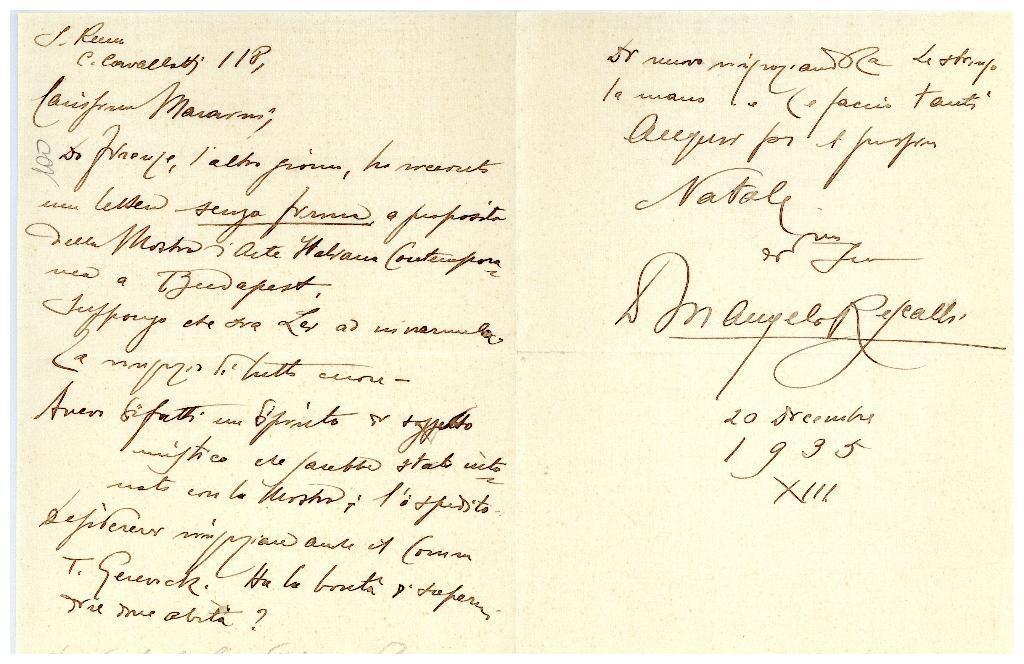 S. Remo
C. Cavallotti 118,
Carissimo Maraini,
Da Firenze, l'altro giorno, ho ricevuto
una lettera senza firma, a proposito
della Mostra d'Arte Italiana Contempora=
nea a Budapest.
Suppongo che sia Lei ad inviarmela
La ringrazio di tutto cuore —
Avevo difatti un dipinto di soggetto
mistico che sarebbe stato into=
nato con la Mostra; l'ò spedito.
Desidererei ringraziare anche il Comm
T. Gerevich. Ha la bontà di sapermi
dire dove abita?
100
Di nuovo ringraziandola Le stringo
la mano e Le faccio tanti
Auguri per il prossimo
Natale
suo
D. Angelo Rescalli
20 Dicembre
1935
XIII